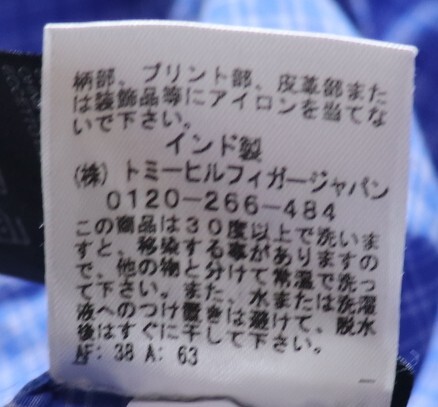 柄部、プリント部、皮革部また
は装飾品等にアイロンを当てな
いで下さい。
インド製
(株) トミーヒルフィガージャパン
0120-266-484
この商品は30度以上で洗いま
すと、移染する事がありますの
で、他の物と分けて常温で洗っ
て下さい。また、水または洗濯
液へのつけ置きは避けて、脱水
後はすぐに干して下さい。
AF: 38 A: 63